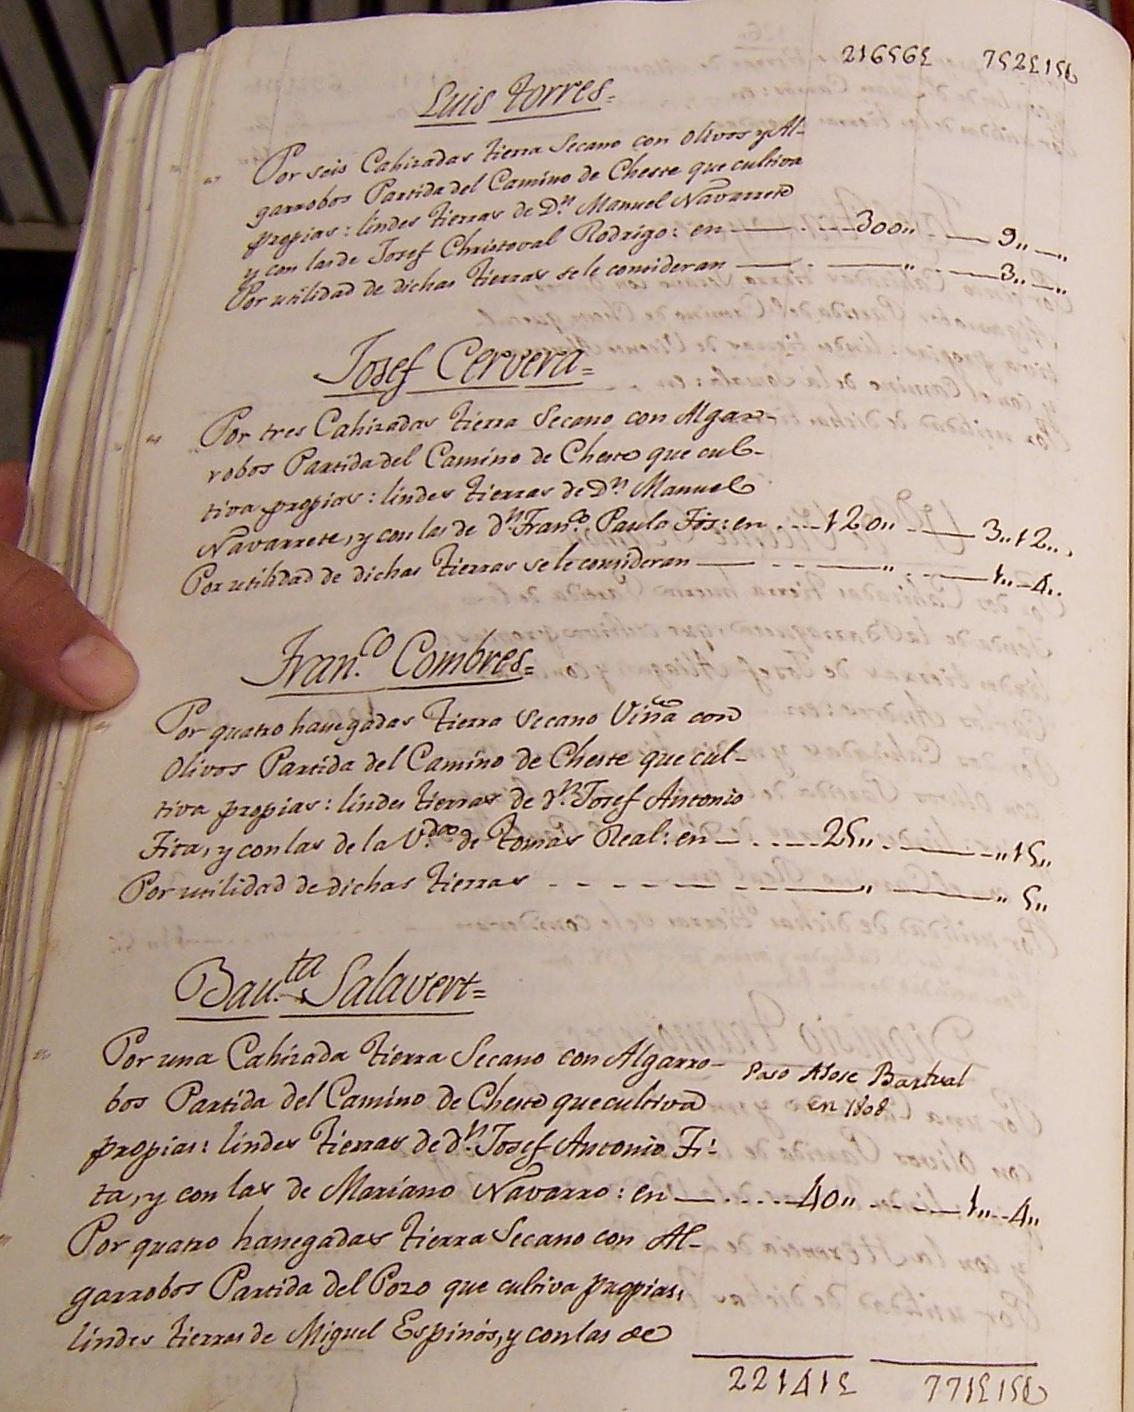 21656£ 7525156
Luis Torres=
Por seis Cahizadas tierra Secano con Olivos y Al-
garrobos Partida del Camino de Cheste que cultiva
propias: lindes tierras de Dn. Manuel Navarrete
y con las de Josef Christoval Rodrigo: en 300,, 9,, ,,
Por utilidad de dichas tierras se le consideran ,, 3,, ,,
Josef Cervera=
Por tres Cahizadas tierra Secano con Algar-
robos Partida del Camino de Cheste que cul-
tiva propias: lindes tierras de Dn. Manuel
Navarrete, y con las de dn. Franco. Paula Fos: en 120,, 3,,12,,
Por utilidad de dichas tierras se le consideran ,, 1,,4,,
Fran.co Combres=
Por quatro hanegadas tierra Secano Viña con
Olivos Partida del Camino de Cheste que cul-
tiva propias: lindes tierras de dn. Josef Antonio
Fita, y con las de la V.da de Tomás Real: en 25,, ,,15,,
Por utilidad de dichas tierras ,, ,,5,,
Bau.ta Salavert=
Por una Cahizada tierra Secano con Algarro-
Paso A Jose Bartual
en 1808
bos Partida del Camino de Cheste que cultiva
propias: lindes tierras de dn. Josef Antonio Fi-
ta, y con las de Mariano Navarro: en 40,, 1,,4,,
Por quatro hanegadas tierra Secano con Al-
garrobos Partida del Pozo que cultiva propias,
lindes tierras de Miguel Espinós, y con las de
22141£